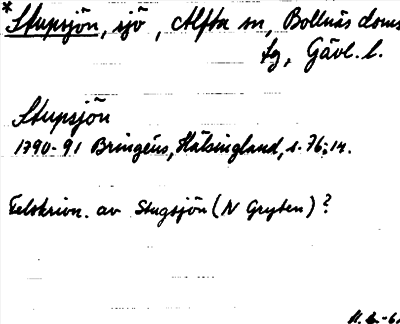 *Stupsjön, sjö, Alfta sn, Bollnäs doms
sg, Gävl. l.
Stupsjön
1790-91 Bringéus, Hälsingland, s. 76; 14.
Felskrivn. av Stugsjön (N Gryten)?